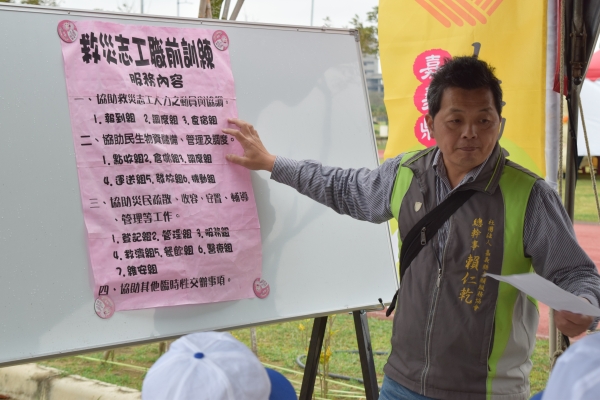 救災志工職前訓練
服務內容
一、協助救災志工人力之動員與協調。
1.報到組 2.調度組 3.食宿組
二、協助民生物資儲備、管理及調度。
1.點收組 2.倉儲組 3.調度組
4.運送組 5.發放組 6.機動組
三、協助災民疏散、收容、安置、輔導
管理等工作。
1.登記組 2.管理組 3.服務組
4.救濟組 5.餐飲組 6.醫療組
7.維安組
四、協助其他臨時性交辦事項。
嘉
總幹事 賴仁乾